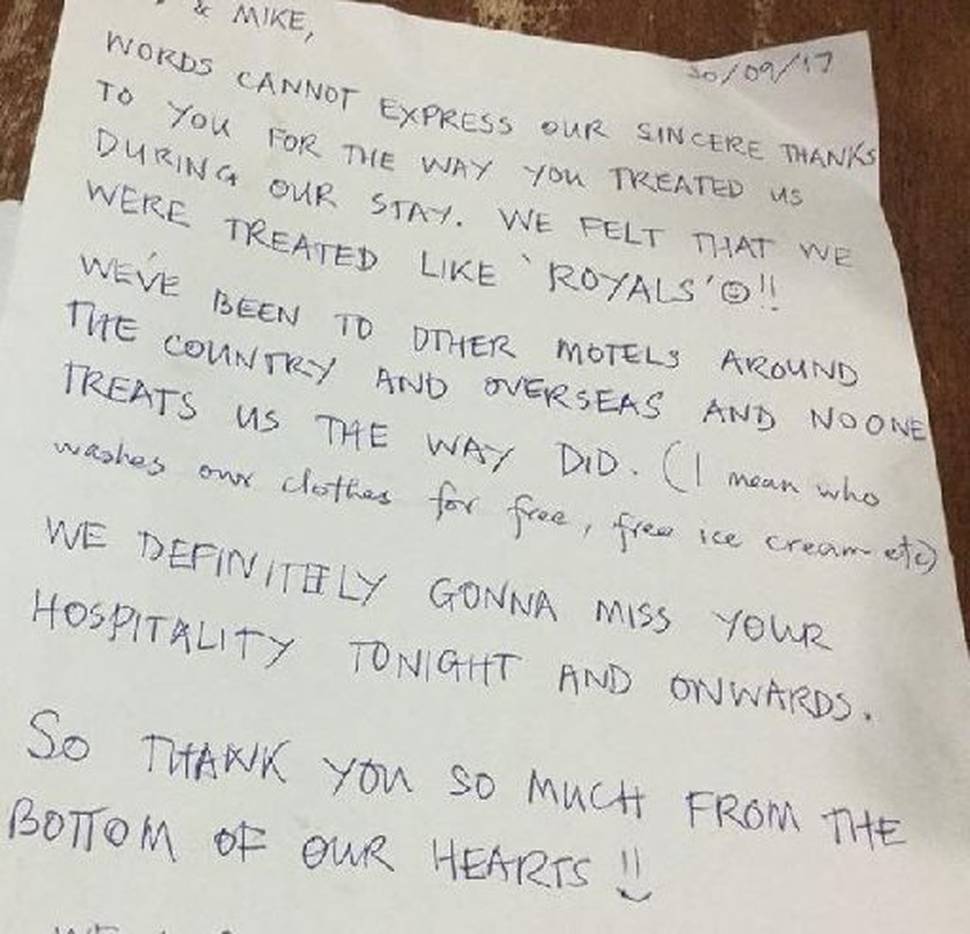 & MIKE,
30/09/17
WORDS CANNOT EXPRESS OUR SINCERE THANKS
TO YOU FOR THE WAY YOU TREATED US
DURING OUR STAY. WE FELT THAT WE
WERE TREATED LIKE 'ROYALS'☺!!
WE'VE BEEN TO OTHER MOTELS AROUND
THE COUNTRY AND OVERSEAS AND NOONE
TREATS US THE WAY DID. (I mean who
washes our clothes for free, free ice cream etc)
WE DEFINITELY GONNA MISS YOUR
HOSPITALITY TONIGHT AND ONWARDS.
SO THANK YOU SO MUCH FROM THE
BOTTOM OF OUR HEARTS !!